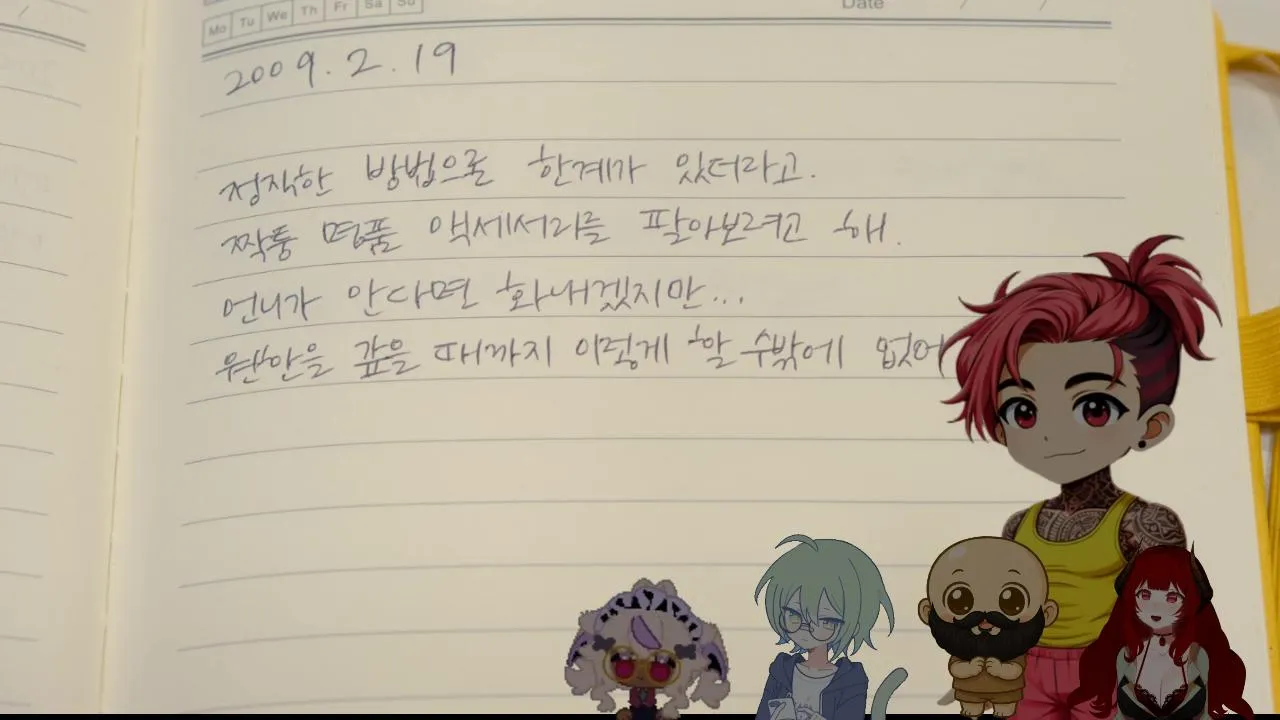 Mo Tu We Th Fr Sa Su
Date / /
2009. 2. 19
정직한 방법으론 한계가 있더라고.
짝퉁 명품 액세서리를 팔아보려고 해.
언니가 안다면 화내겠지만...
원한을 갚을 때까지 이렇게 할 수밖에 없어